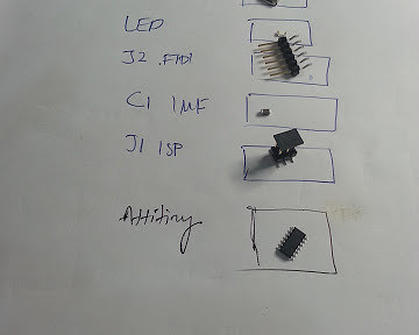 LED
J2 .FTDI
C1 1MF
J1 ISP
Attitiny